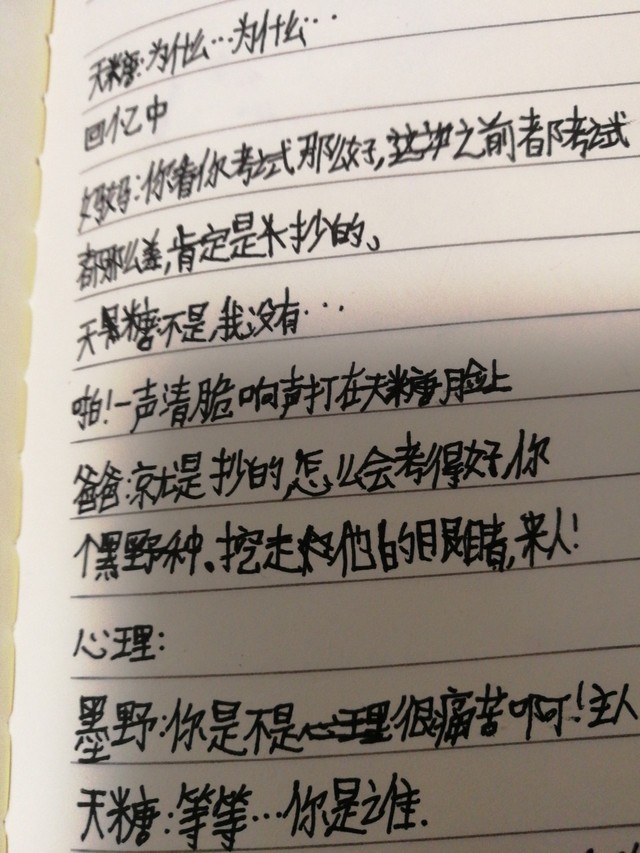 天糖:为什么…为什么…
回忆中
妈妈:你看你考试那么好,这次之前都考试
都那么差,肯定是 抄的、
天黑糖:不是,我没有…
啪!一声清脆响声打在天糖脸上
爸爸:就是抄的,怎么会考得好,你
个黑野种、挖走 他的眼睛,来人!
心理:
墨野:你是不是心理很痛苦啊!主人
天糖:等等…你是谁.